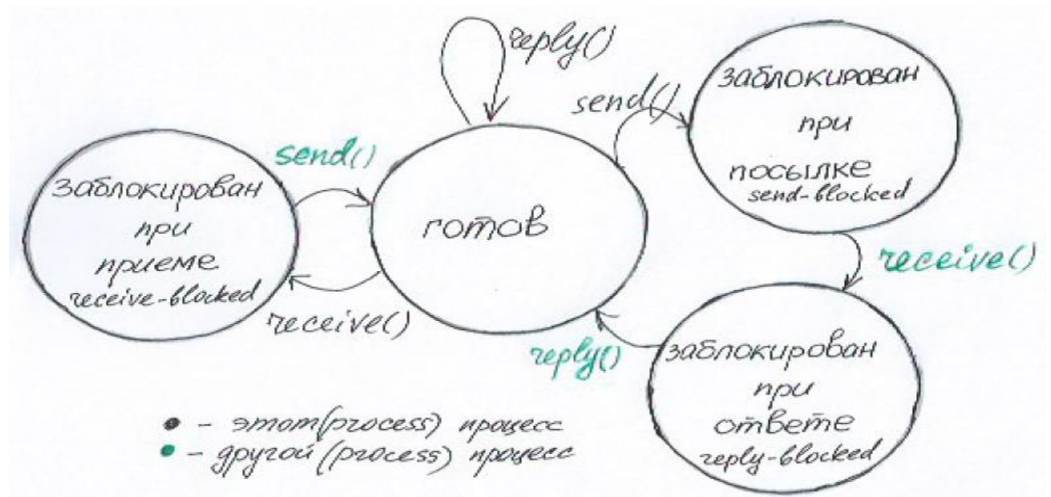 reply()
send()
заблокирован
при
посылке
send-blocked
send()
заблокирован
при
приеме
receive-blocked
готов
receive()
receive()
reply()
заблокирован
при
ответе
reply-blocked
● - этот(process) процесс
● - другой(process) процесс